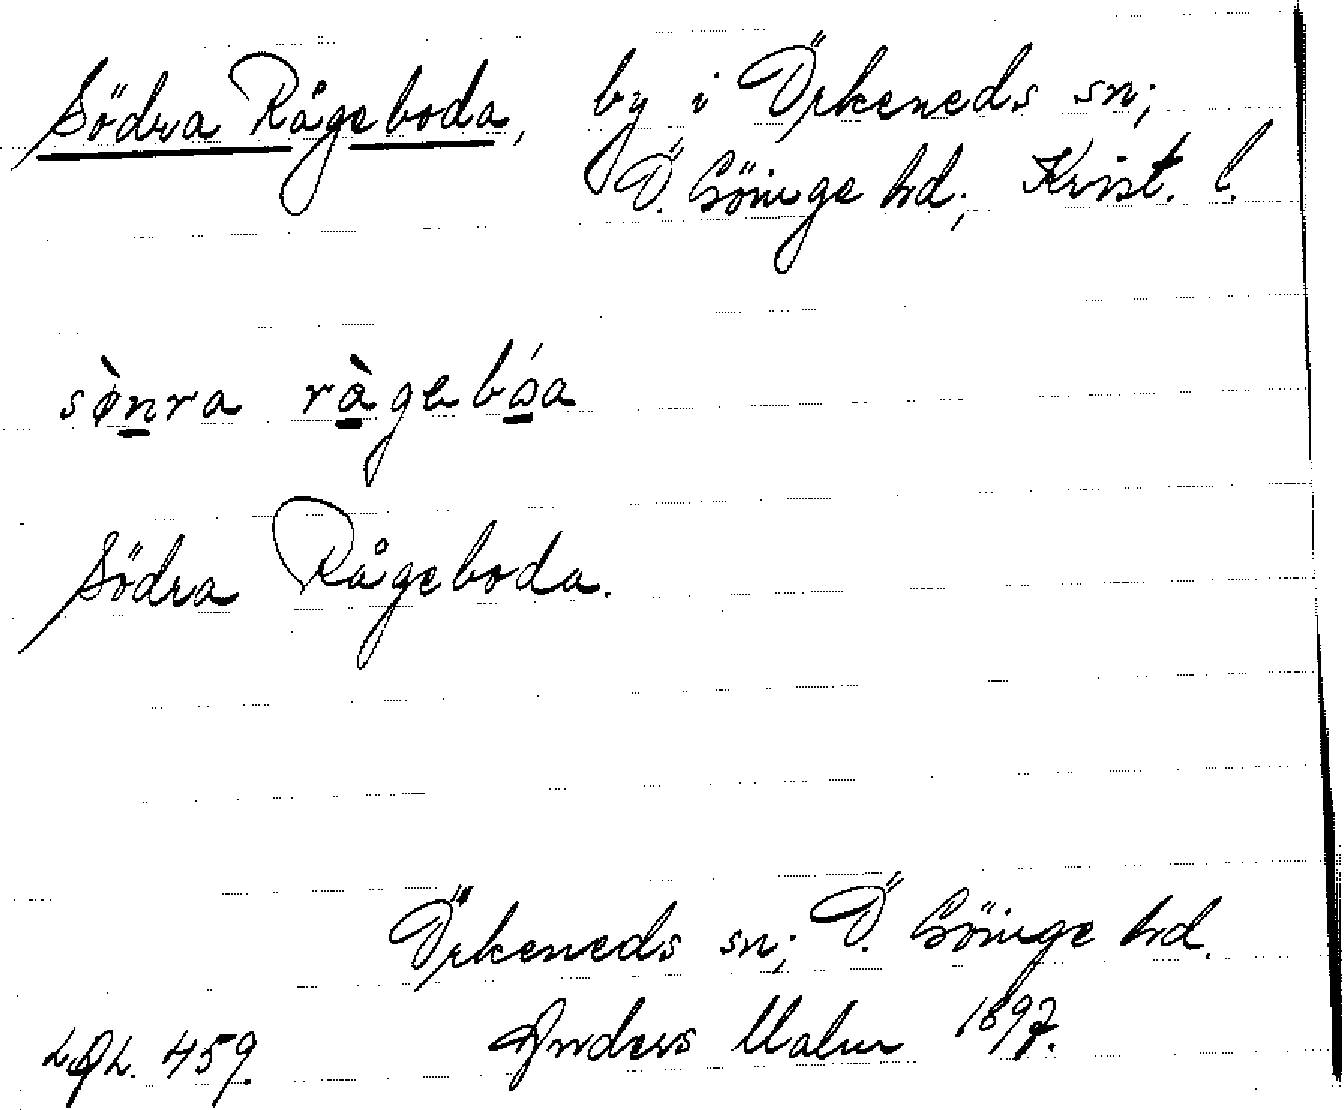 Södra Rågeboda, by i Örkeneds sn;
Ö. Göinge hd; Krist. l.
sø̀nra ràgebóa
Södra Rågeboda.
Örkeneds sn; Ö. Göinge hd.
459. Anders Malm 1897.